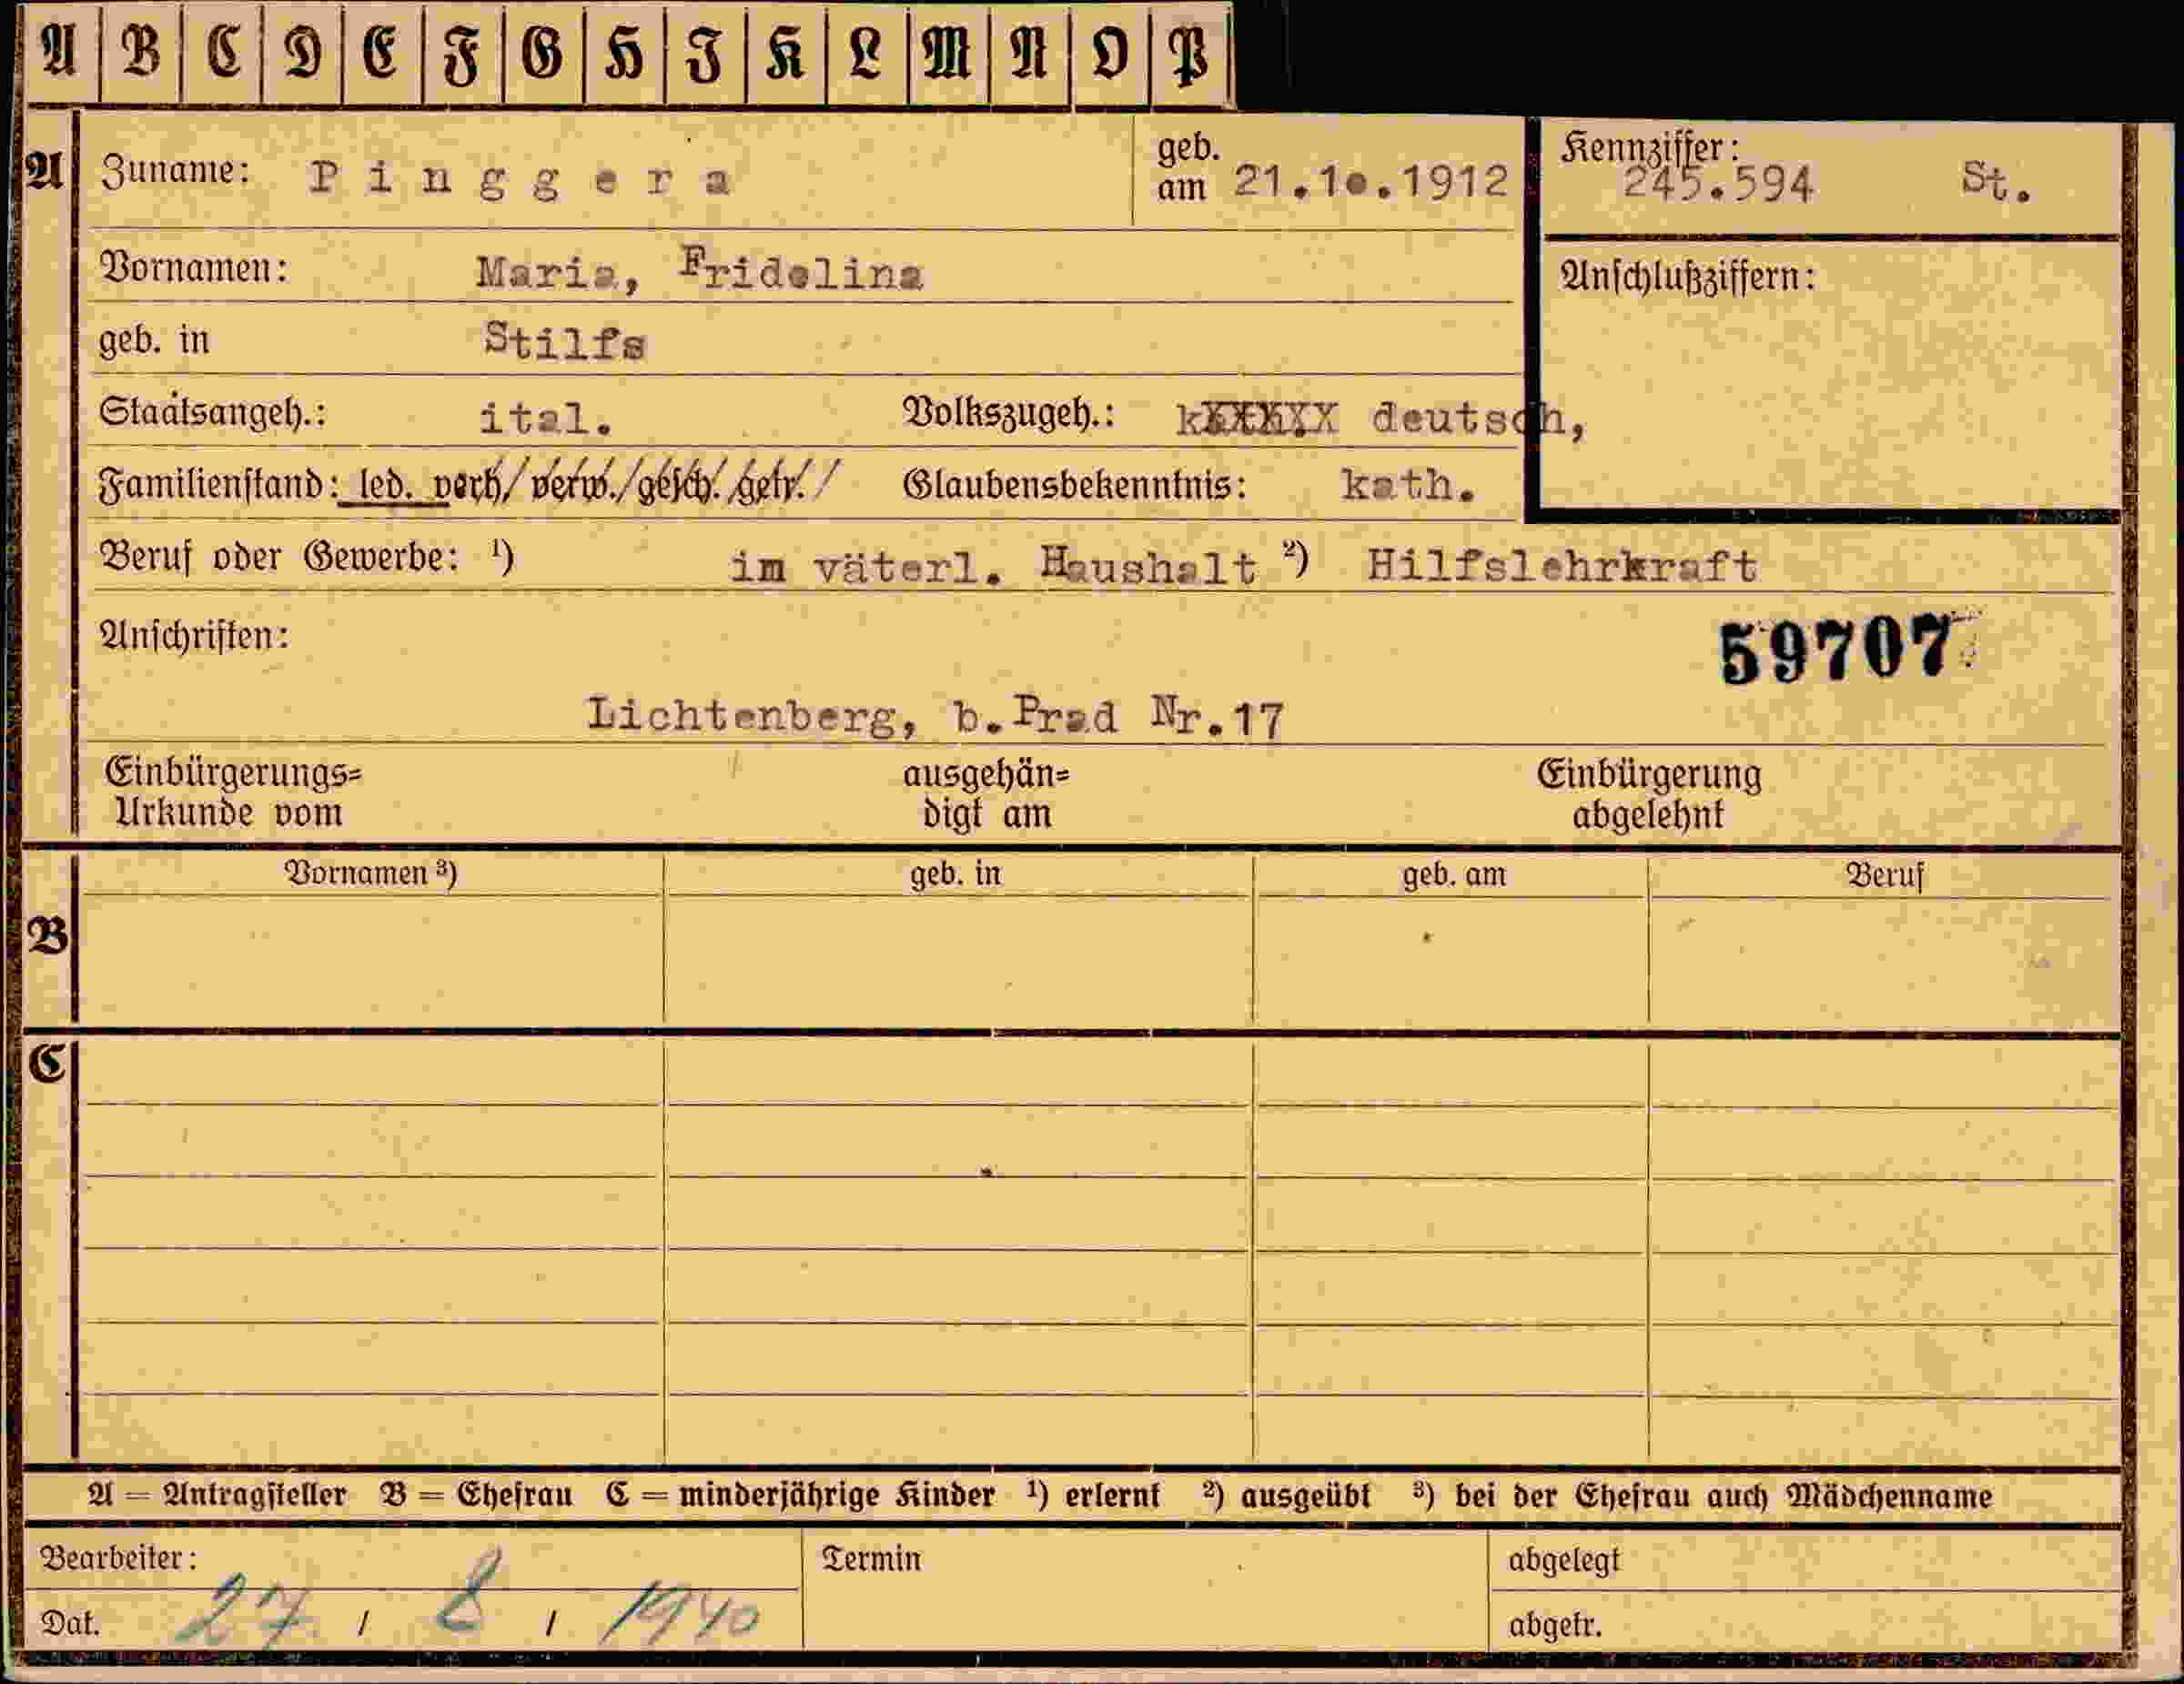 A B C D E F G H J K L M N O P
A Zuname: Pinggera geb. am 21.1o.1912 Kennziffer: 245.594 St.
Vornamen: Maria, Fridolina Anschlußziffern:
geb. in Stilfs
Staatsangeh.: ital. Volkszugeh.: deutsch,
Familienstand: led. verh/ verw./ gesch./ getr./ Glaubensbekenntnis: kath.
Beruf oder Gewerbe: ¹) im väterl. Haushalt ²) Hilfslehrkraft
Anschriften: 59707
Lichtenberg, b.Prad Nr.17
Einbürgerungs= ausgehän= Einbürgerung
Urkunde vom digt am abgelehnt
B Vornamen ³) geb. in geb. am Beruf
C
A = Antragsteller B = Ehefrau C = minderjährige Kinder ¹) erlernt ²) ausgeübt ³) bei der Ehefrau auch Mädchenname
Bearbeiter: Termin abgelegt
Dat. 27 / 8 / 1940 abgetr.